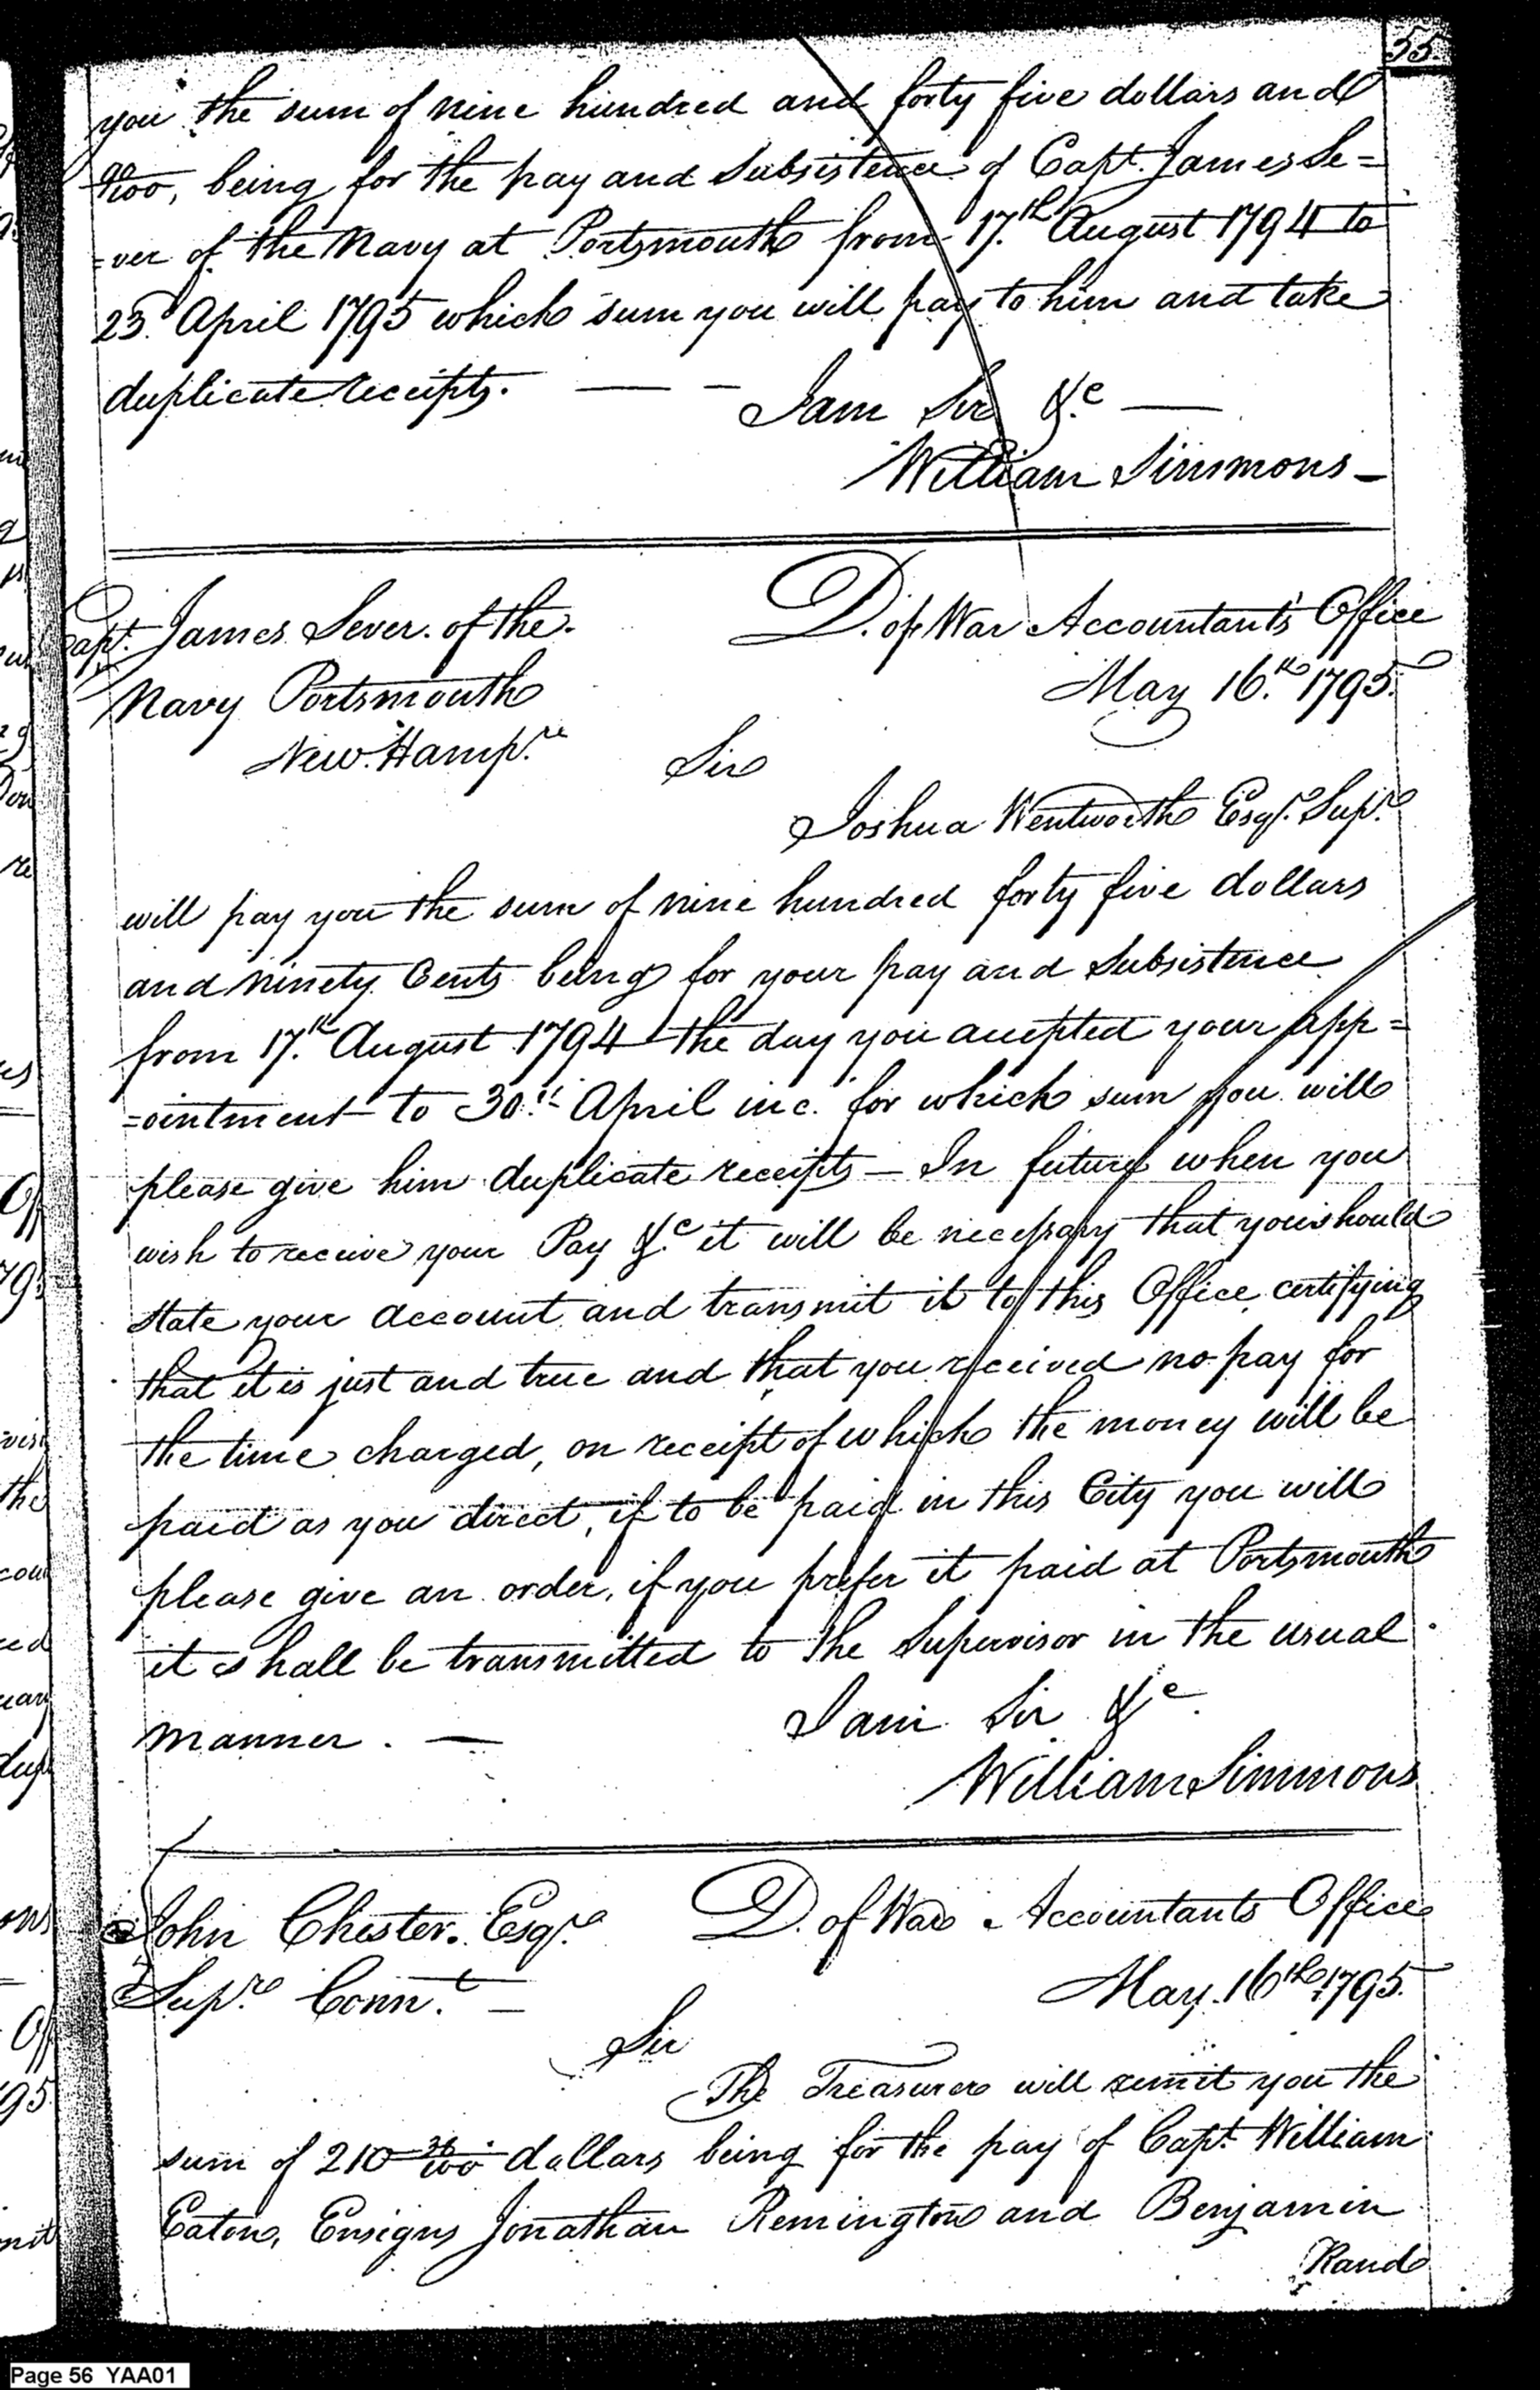 55.
you the sum of nine hundred and forty five dollars and
90/100, being for the pay and Subsistence of Capt. James Se=
=ver of the Navy at Portsmouth from 17.th August 1794 to
23.d April 1795 which sum you will pay to him and take
duplicate receipts. — —
I am Sir &.c —
William Simmons —
Capt. James Sever. of the
Navy Portsmouth
New Hamp.re
D. of War Accountant's Office
May 16.th 1795.
Sir
Joshua Wentworth Esqr. Supr.
will pay you the sum of nine hundred forty five dollars
and ninety Cents being for your pay and Subsistence
from 17.th August 1794 the day you accepted your app=
=ointment to 30.th April inc. for which sum you will
please give him duplicate receipts — In future when you
wish to receive your Pay &.c it will be necessary that you should
state your account and transmit it to this Office certifying
that it is just and true and that you received no pay for
the time charged, on receipt of which the money will be
paid as you direct, if to be paid in this City you will
please give an order, if you prefer it paid at Portsmouth
it shall be transmitted to the Supervisor in the usual
manner. —
I am Sir &c.
William Simmons
John Chester. Esqr.
Supr. Conn.t —
D. of War Accountants Office
May 16th 1795.
Sir
The Treasurer will remit you the
sum of 210 36/100 dollars being for the pay of Capt. William
Eaton, Ensigns Jonathan Remington and Benjamin
Rand
Page 56 YAA01